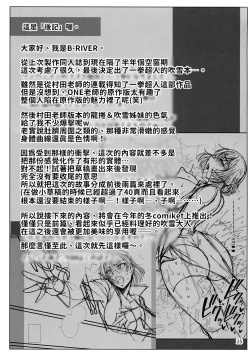 這是「後記」喔。
大家好，我是B-RIVER。
從上次製作同人誌到現在隔了半年個空窗期
這次考慮了很久，最後決定出了一拳超人的吹雪本…。
雖然是從村田老師的連載中得知了一拳超人這部作品
但是沒想到，ONE老師的原作版太有趣了
整個人陷在原作版的魅力裡了呢(笑)
然後村田老師版本的龍捲&吹雪姊妹的色氣
給了我不少爆擊呢w
老實說肚臍周圍之類的、那種非常滑嫩的感覺
身體曲線還真是色情啊！
因為受到那樣的衝擊、這次的內容就差不多是
把那份感覺化作了有形的實體…
對不起！試著把草稿畫出來後發現
完全沒有要收尾的意思
所以就把這次的故事分成前後兩篇來處理了。
在做小草稿的時候已經超過了40頁而且看起來
根本還沒要結束的樣子啊─！樣子啊─、子啊─……]
所以說接下來的內容、將會在今年的冬comiket上推出！
僅僅只是前篇、看起來似乎已經料理好的吹雪大人
在這之後還會被更加美味的享用喔
那麼言僅至此、這次就先這樣囉～。